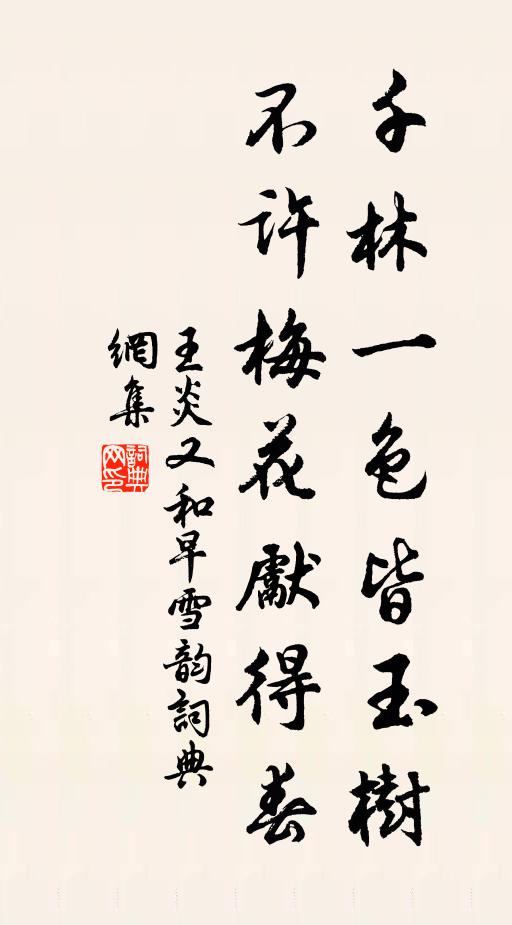 千林一色皆玉樹
不許梅花獻得春
王炎又和早雪韵詞典
網集
詞典网印